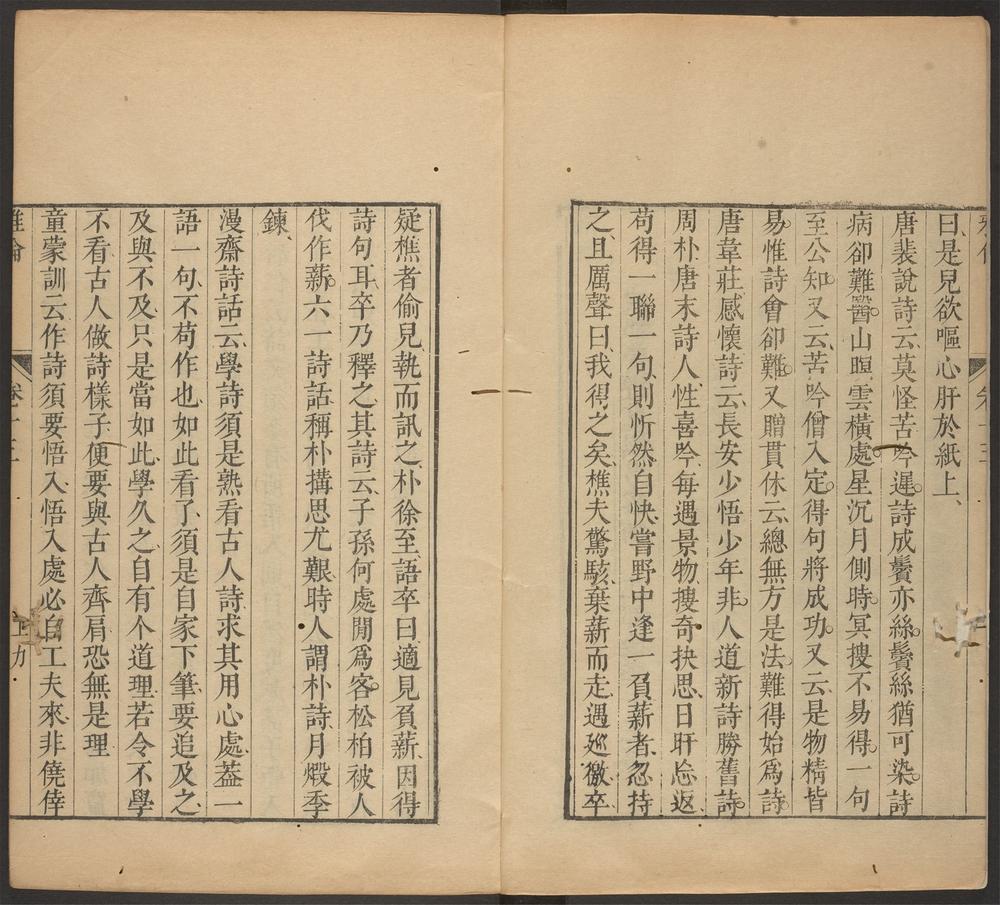 曰是兒欲嘔心肝於紙上、
唐裴說詩云、莫怪苦吟遲。詩成鬢亦絲。鬢絲猶可染。詩
病卻難醫。山暝雲橫處。星沉月側時。冥搜不易得。一句
至公知。又云、苦吟僧入定。得句將成功。又云、是物精皆
易。惟詩會卻難。又贈貫休云、總無方是法。難得始爲詩。
唐韋莊感懷詩云、長安少悟少年非。人道新詩勝舊詩。
周朴唐末詩人、性喜吟、每遇景物、搜奇抉思、日旰忘返、
苟得一聯一句、則忻然自快、嘗野中逢一負薪者、忽持
之、且厲聲曰、我得之矣、樵夫驚駭、棄薪而走、遇巡徼卒、
疑樵者偷兒、執而訊之、朴徐至語卒曰、適見負薪、因得
詩句耳、卒乃釋之、其詩云、子孫何處閒爲客。松柏被人
伐作薪。六一詩話稱朴搆思尤艱、時人謂朴詩月煅季
鍊、
漫齋詩話云、學詩須是熟看古人詩、求其用心處、葢一
語一句、不苟作也、如此看了、須是自家下筆、要追及之、
及與不及、只是當如此、學久之、自有个道理、若令不學
不看古人做詩樣子、便要與古人齊肩、恐無是理
童蒙訓云、作詩須要悟入、悟入處必自工夫來、非僥倖
雅倫 卷十三